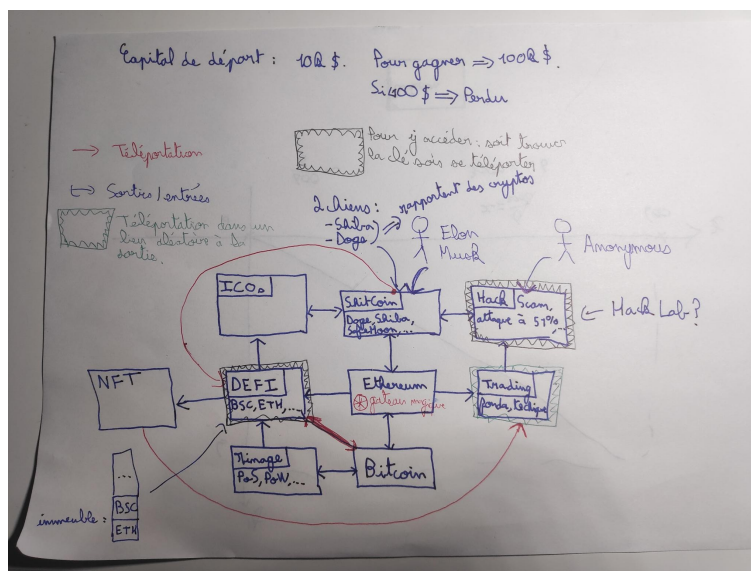 Capital de départ : 10Q $. Pour gagner => 100Q $.
Si 400 $ => Perdu
Téléportation
Sorties/entrées
Téléportation dans un
lieu aléatoire à la
sortie.
Pour y accéder : soit trouver
la clé sois se téléporter
2 chiens :
- Shiba
- Doge
rapportent des cryptos
Elon
Musk
Anonymous
ICOs
ShitCoin
Doge, Shiba,
SafeMoon, ...
Hack Scam,
attaque à 51%, ...
Hack Lab ?
NFT
DEFI
BSC, ETH, ...
Ethereum
gateau magique
Trading
fonda, technique
Minage
PoS, PoW, ...
Bitcoin
immeuble :
...
BSC
ETH